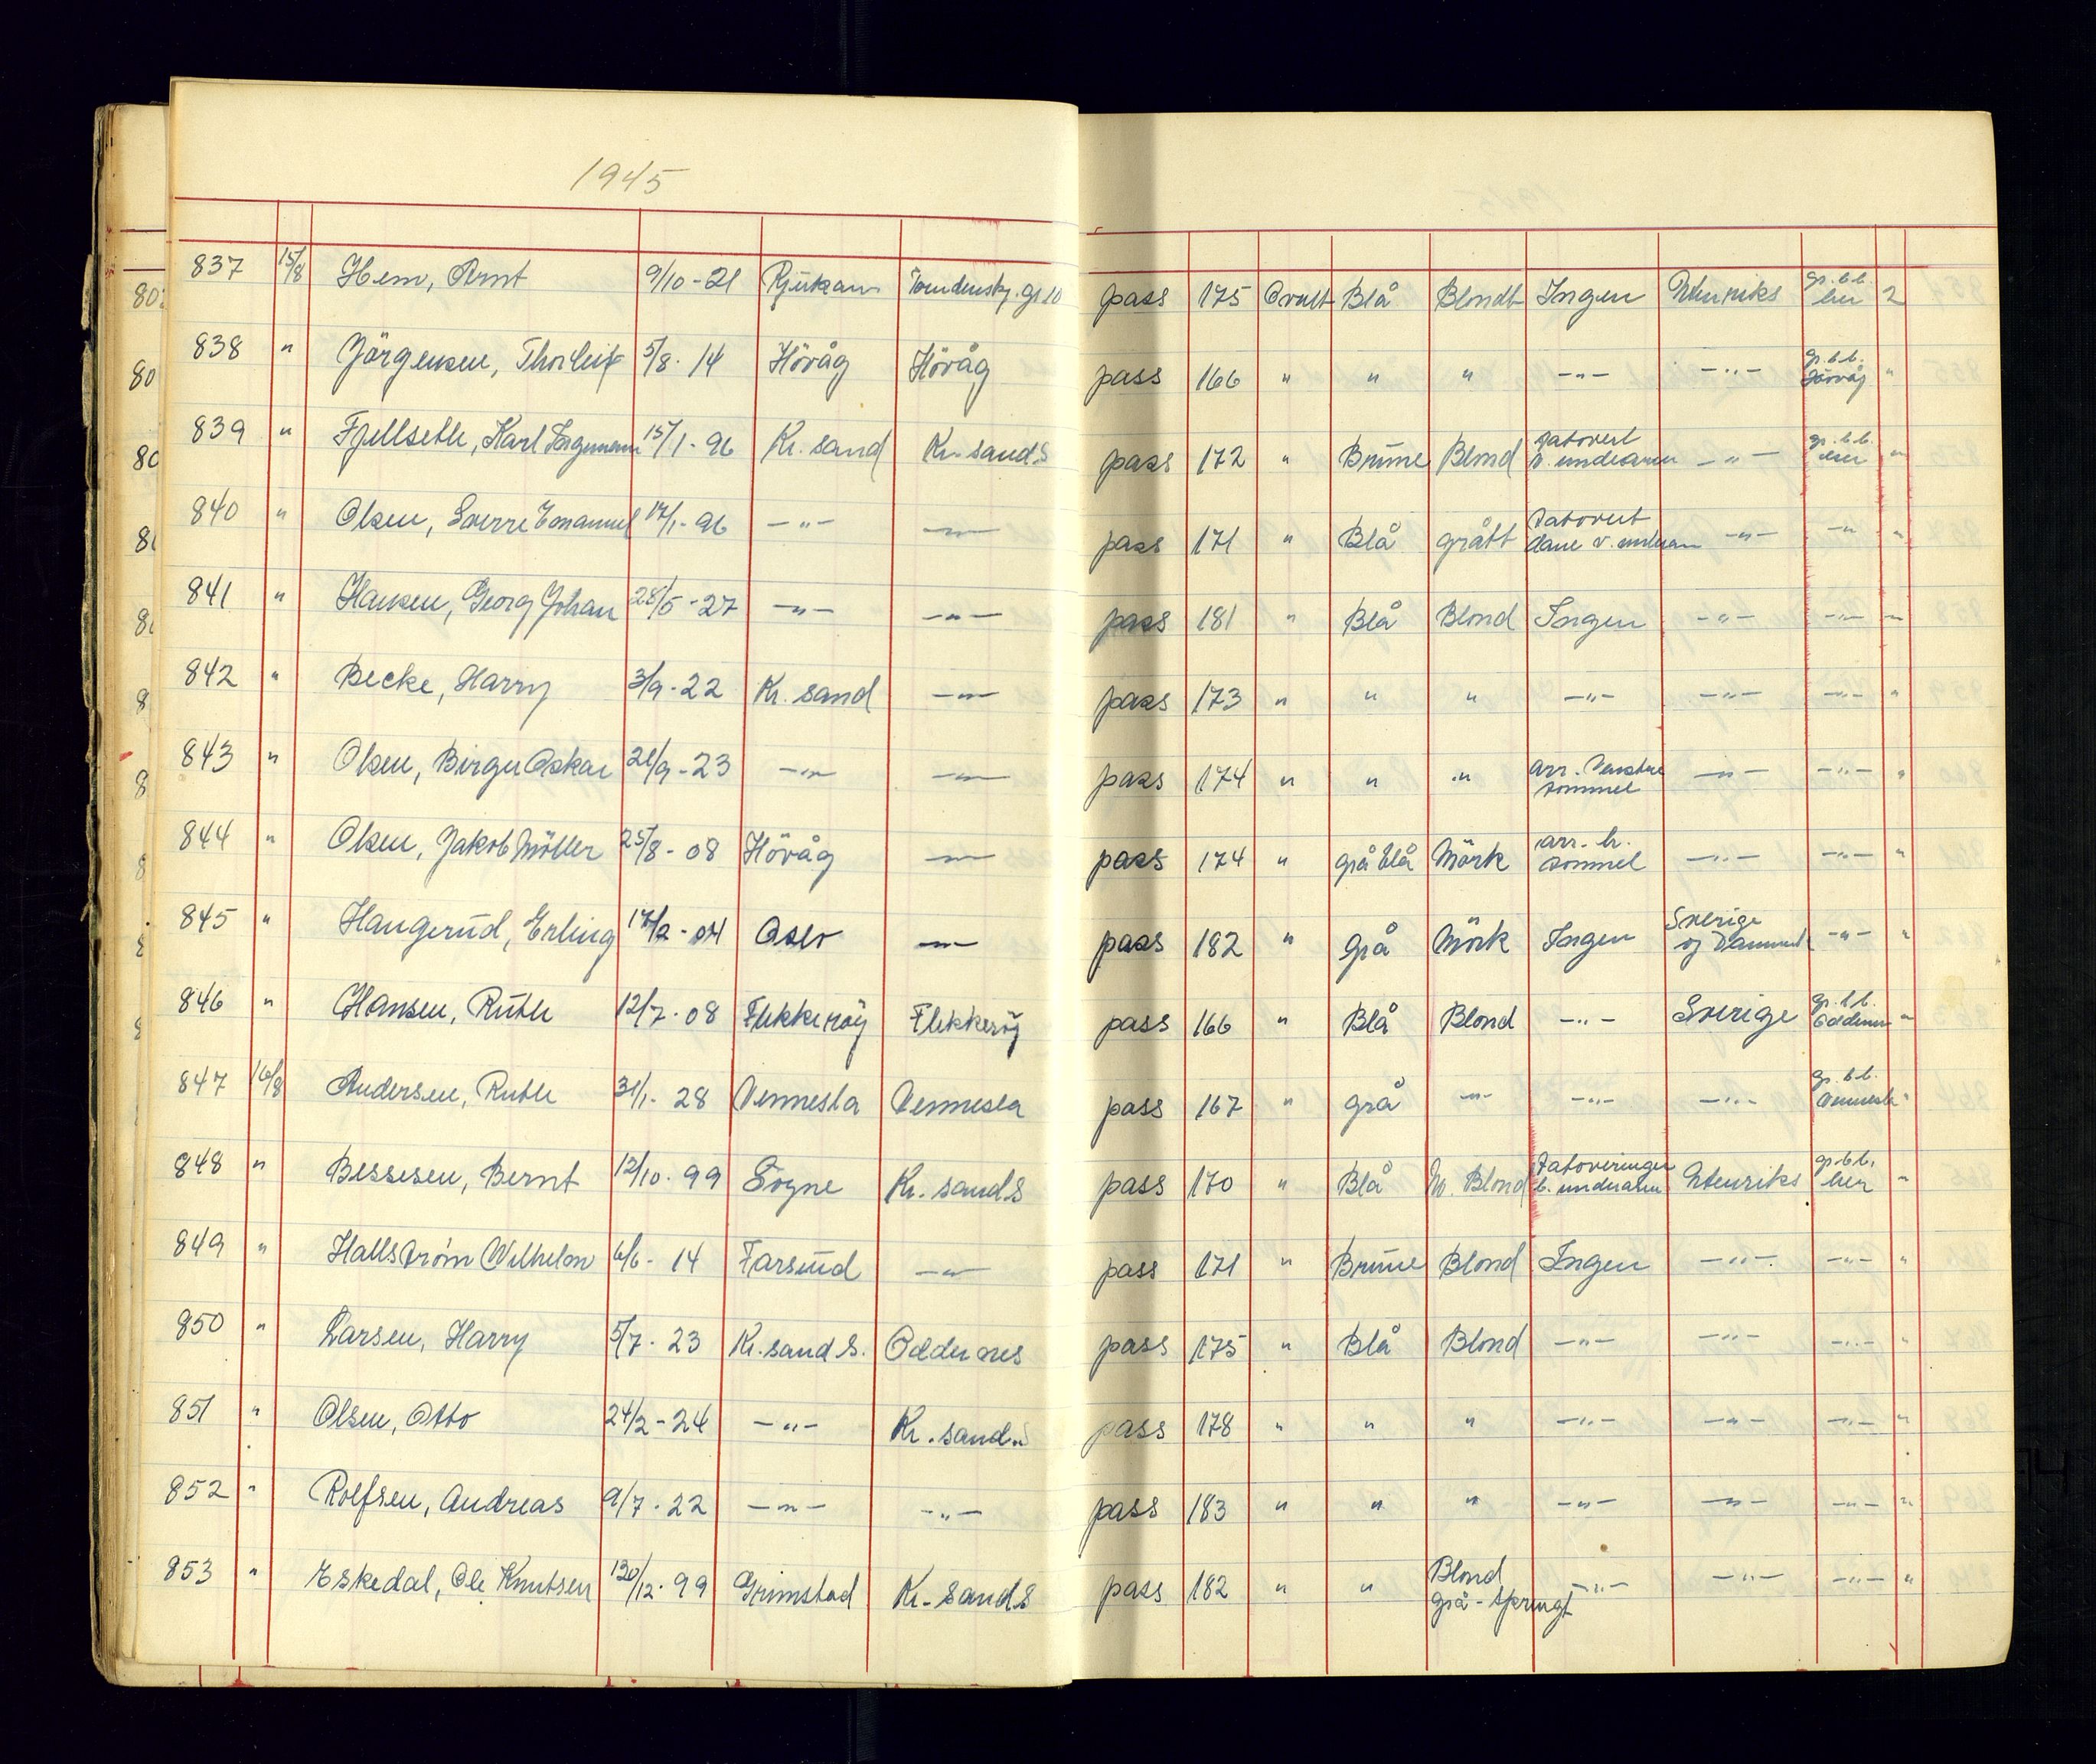 1945
837 15/8 Hem, Arnt 9/10-21 Rjukan gs 10 pass 175 Ovalt Blå Blondt Ingen Utenriks gr. b.b. her 2
838 " Jörgensen, Thorleif 5/8-14 Hövåg Hövåg pass 166 " " " -"- -"- gr. b.b. Hövåg "
839 " Fjellseth, Karl 15/1-96 Kr. sand Kr. sand S pass 172 " Brune Blond Tatovert v. underarm -"- gr. b.b. her "
840 " Olsen, Sverre Emanuel 17/1-96 -"- -"- pass 171 " Blå grått Tatovert dame v. underarm -"- -"- "
841 " Hansen, Georg Johan 28/5-27 -"- -"- pass 181 " Blå Blond Ingen -"- -"- "
842 " Becke, Harry 3/9-22 Kr. sand -"- pass 173 " " " -"- -"- -"- "
843 " Olsen, Birger Oskar 21/9-23 -"- -"- pass 174 " " " arr. Venstre tommel -"- -"- "
844 " Olsen, Jakob Möller 25/8-08 Hövåg -"- pass 174 " grå blå Mörk arr. h. tommel -"- -"- "
845 " Haugerud, Erling 17/2-04 Oslo -"- pass 182 " Grå Mörk Ingen Sverige og Danmark -"- "
846 " Hansen, Ruth 12/7-08 Flekkeröy Flekkeröy pass 166 " Blå Blond -"- Sverige gr. b.b. Oddernes "
847 16/8 Andersen, Ruth 31/1-28 Vennesla Vennesla pass 167 " grå -"- -"- -"- gr. b.b. Vennesla "
848 " Bessesen, Bernt 12/10-99 Sögne Kr. sand S pass 170 " Blå M. Blond Tatoveringer b. underarm Utenriks gr. b.b. her "
849 " Hallström Wilhelm 6/6-14 Farsund -"- pass 171 " Brune Blond Ingen -"- -"- "
850 " Larsen, Harry 5/7-23 Kr. sand S. Oddernes pass 175 " Blå Blond -"- -"- -"- "
851 " Olsen, Otto 24/2-24 -"- Kr. sand S pass 178 " " " -"- -"- -"- "
852 " Rolfsen, Andreas 9/7-22 -"- -"- pass 183 " " " -"- -"- -"- "
853 " Eskedal, Ole Knutsen /12-99 Grimstad Kr. sand S pass 182 " " Blond grå-sprengt -"- -"- -"- "